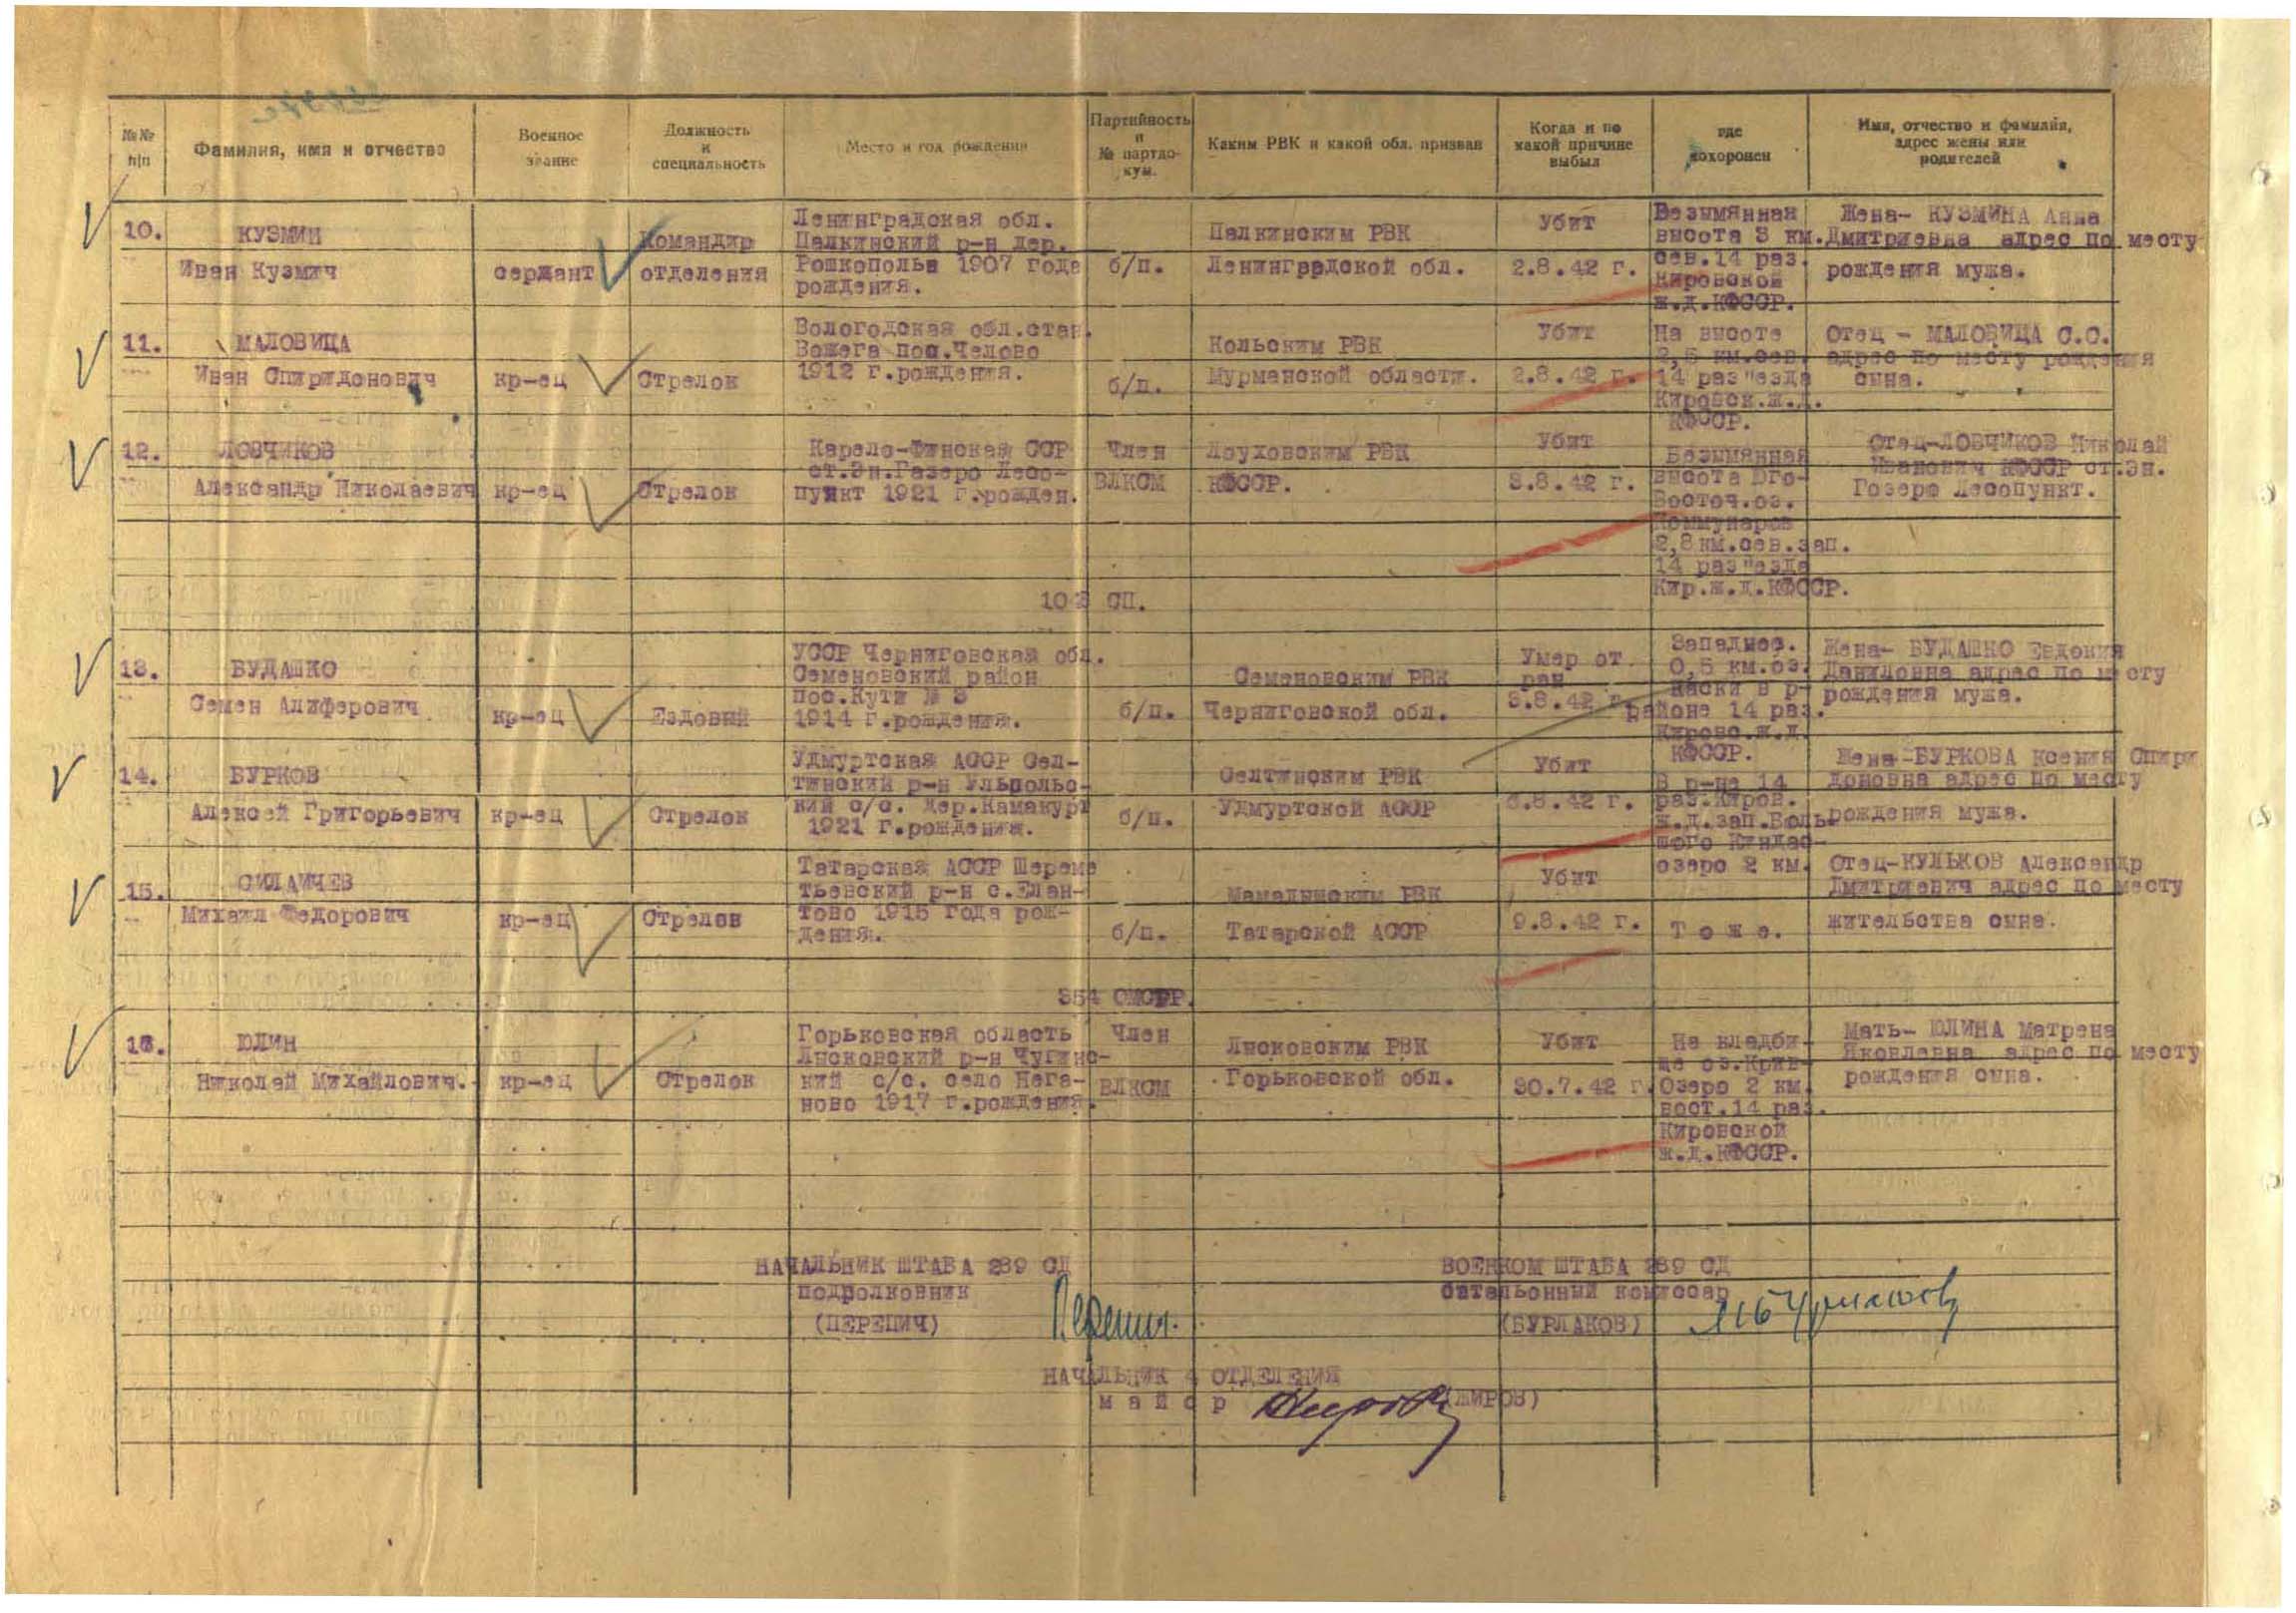 №№ п/п
Фамилия, имя и отчество
Военное звание
Должность и специальность
Место и год рождения
Партийность и № партдокум.
Каким РВК и какой обл. призван
Когда и по какой причине выбыл
где похоронен
Имя, отчество и фамилия, адрес жены или родителей
10.
КУЗМИН
Иван Кузмич
сержант
Командир
отделения
Ленинградская обл.
Палкинский р-н дер.
Рошкополье 1907 года
рождения.
б/п.
Палкинским РВК
Ленинградской обл.
Убит
2.8.42 г.
Безымянная
высота 3 км.
сев.14 раз.
Кировской
ж.д.КФССР.
Жена- КУЗМИНА Анна
Дмитриевна адрес по месту
рождения мужа.
11.
МАЛОВИЦА
Иван Спиридонович
кр-ец
Стрелок
Вологодская обл.стан.
Вожега пос.Челово
1912 г.рождения.
б/п.
Кольским РВК
Мурманской области.
Убит
2.8.42 г.
На высоте
2,5 км.сев.
14 раз"езда
Кировск.ж.д.
КФССР.
Отец - МАЛОВИЦА С.С.
адрес по месту рождения
сына.
12.
ЛОВЧИКОВ
Александр Николаевич
кр-ец
Стрелок
Карело-Финская ССР
ст.Эн.Газеро Лесо-
пункт 1921 г.рожден.
Член
ВЛКСМ
Лоуховским РВК
КФССР.
Убит
3.8.42 г.
Безымянная
высота Юго-
Восточ.оз.
Коммунаров
2,8 км.сев.зап.
14 раз"езда
Кир.ж.д.КФССР.
Отец-ЛОВЧИКОВ Николай
Иванович КФССР ст.Эн.
Гозеро Лесопункт.
СП.
13.
БУДАШКО
Семен Алиферович
кр-ец
Ездовый
УССР Черниговская обл.
Семеновский район
пос.Кути № 3
1914 г.рождения.
б/п.
Семеновским РВК
Черниговской обл.
Умер от
ран
3.8.42 г.
Западнее.
0,5 км.оз.
районе 14 раз.
Кировс.ж.д.
КФССР.
Жена- БУДАШКО Евдокия
Даниловна адрес по месту
рождения мужа.
14.
БУРКОВ
Алексей Григорьевич
кр-ец
Стрелок
Удмуртская АССР Сел-
тинский р-н Ульпольс-
кий с/с. дер.Камакурт
1921 г.рождения.
б/п.
Селтинским РВК
Удмуртской АССР
Убит
В р-не 14
раз.Киров.
ж.д.зап.Боль-
шого Кундас-
озеро 2 км.
Жена-БУРКОВА Ксения Спири
доновна адрес по месту
рождения мужа.
15.
СИЛАИЧЕВ
Михаил Федорович
кр-ец
Стрелок
Татарская АССР Шереме
тьевский р-н с.Елан-
тово 1915 года рож-
дения.
б/п.
Мамадышским РВК
Татарской АССР
Убит
9.8.42 г.
Т о ж е.
Отец-КУЛЬКОВ Александр
Дмитриевич адрес по месту
жительства сына.
16.
ЮЛИН
Николай Михайлович.
кр-ец
Стрелок
Горьковская область
Лысковский р-н Чугинс-
кий с/с. село Нега-
ново 1917 г.рождения.
Член
ВЛКСМ
Лысковским РВК
Горьковской обл.
Убит
30.7.42 г.
На кладби-
ще оз.Крив-
Озеро 2 км.
вост.14 раз.
Кировской
ж.д.КФССР.
Мать- ЮЛИНА Матрена
Яковлевна адрес по месту
рождения сына.
НАЧАЛЬНИК ШТАБА 289 СД
подполковник
(ПЕРЕПИЧ)
Перепич.
ВОЕНКОМ ШТАБА 289 СД
батальонный комиссар
(БУРЛАКОВ)
НАЧАЛЬНИК 4 ОТДЕЛЕНИЯ
м а й о р
(ЖИРОВ)